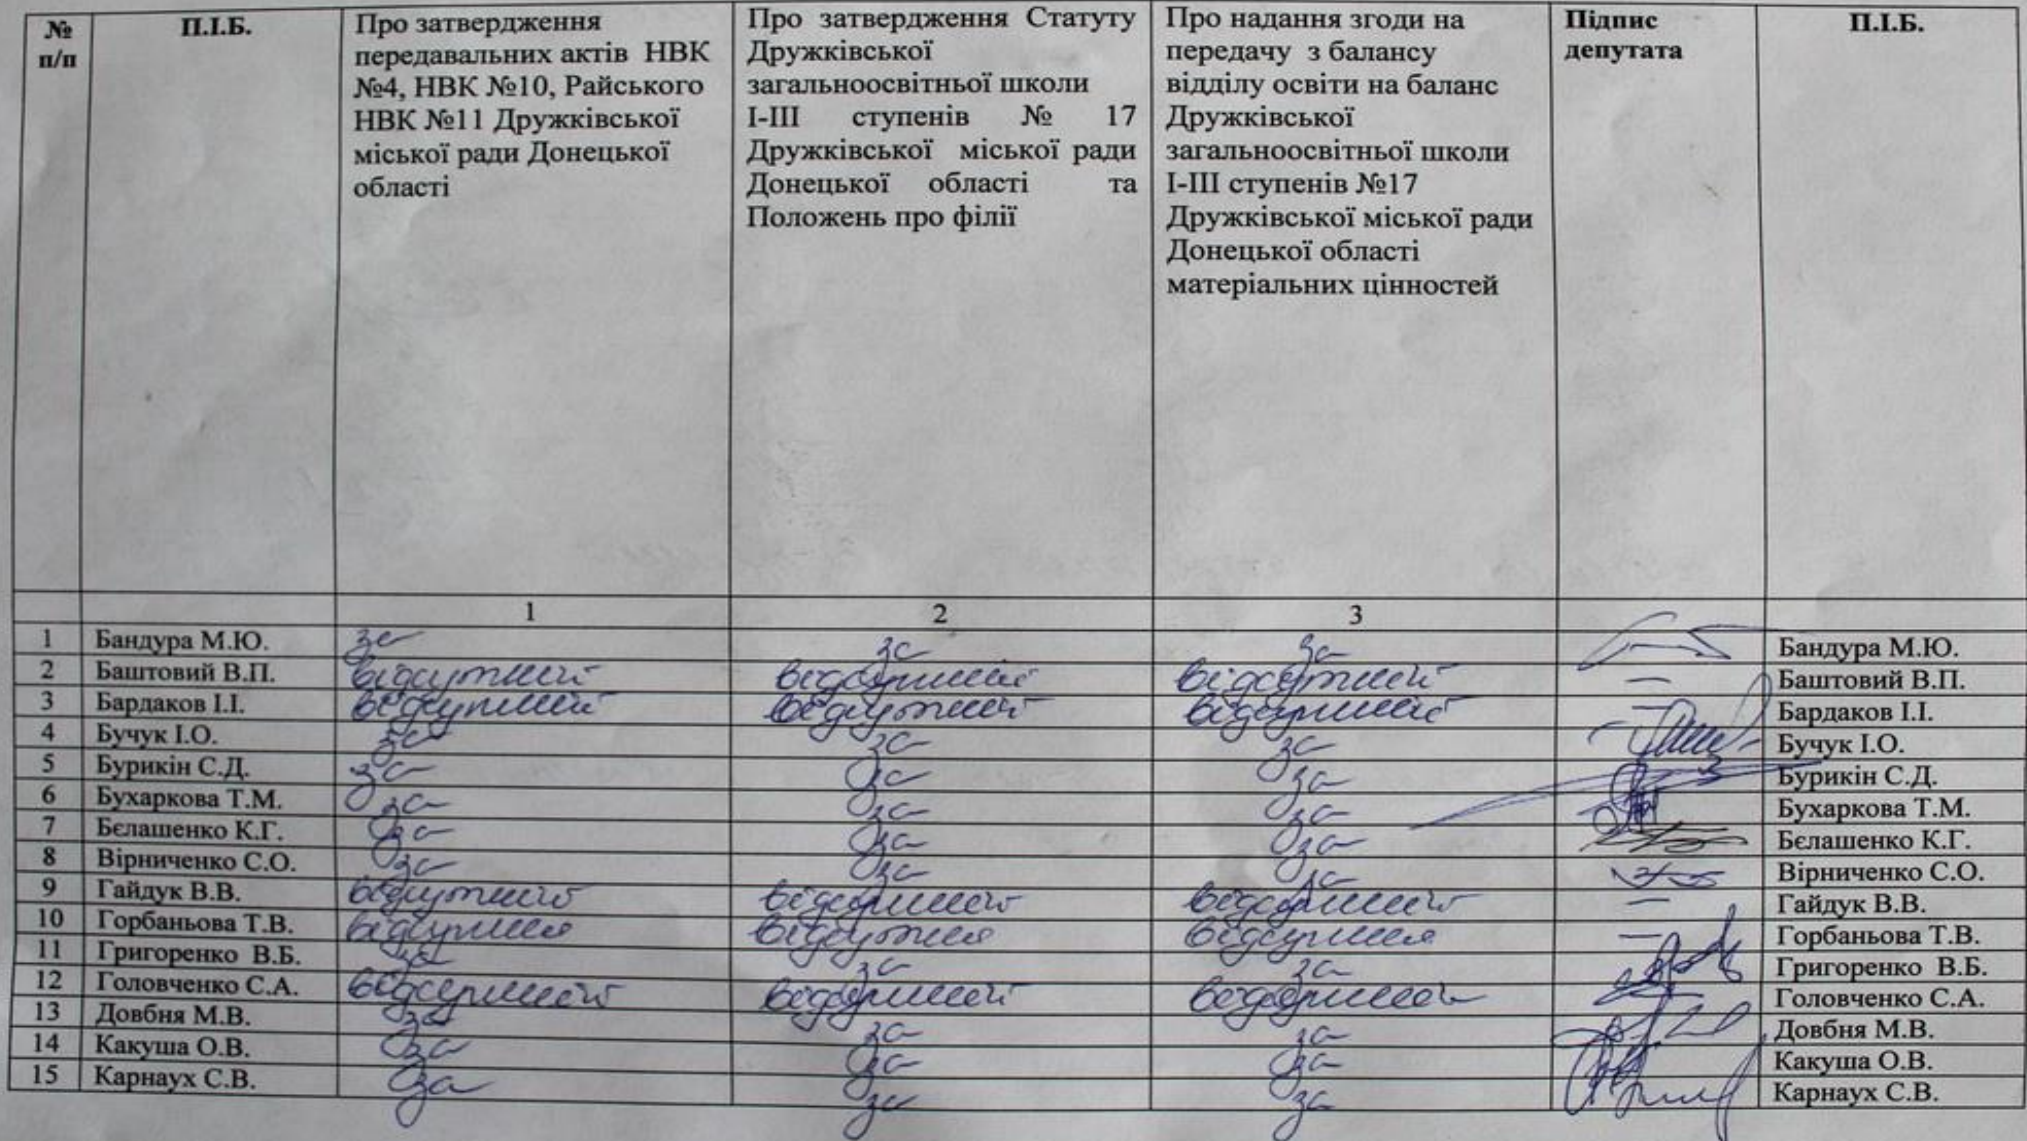 № п/п
П.І.Б.
Про затвердження
передавальних актів НВК
№4, НВК №10, Райського
НВК №11 Дружківської
міської ради Донецької
області
Про затвердження Статуту
Дружківської
загальноосвітньої школи
І-ІІІ ступенів № 17
Дружківської міської ради
Донецької області та
Положень про філії
Про надання згоди на
передачу з балансу
відділу освіти на баланс
Дружківської
загальноосвітньої школи
І-ІІІ ступенів №17
Дружківської міської ради
Донецької області
матеріальних цінностей
Підпис
депутата
П.І.Б.
1 2 3
1 Бандура М.Ю. за за за Бандура М.Ю.
2 Баштовий В.П. відсутній відсутній відсутній — Баштовий В.П.
3 Бардаков І.І. відсутній відсутній відсутній — Бардаков І.І.
4 Бучук І.О. за за за Бучук І.О.
5 Бурикін С.Д. за за за Бурикін С.Д.
6 Бухаркова Т.М. за за за Бухаркова Т.М.
7 Бєлашенко К.Г. за за за Бєлашенко К.Г.
8 Вірниченко С.О. за за за Вірниченко С.О.
9 Гайдук В.В. відсутній відсутній відсутній — Гайдук В.В.
10 Горбаньова Т.В. відсутня відсутня відсутня — Горбаньова Т.В.
11 Григоренко В.Б. за за за Григоренко В.Б.
12 Головченко С.А. відсутній відсутній відсутній Головченко С.А.
13 Довбня М.В. за за за Довбня М.В.
14 Какуша О.В. за за за Какуша О.В.
15 Карнаух С.В. за за за Карнаух С.В.